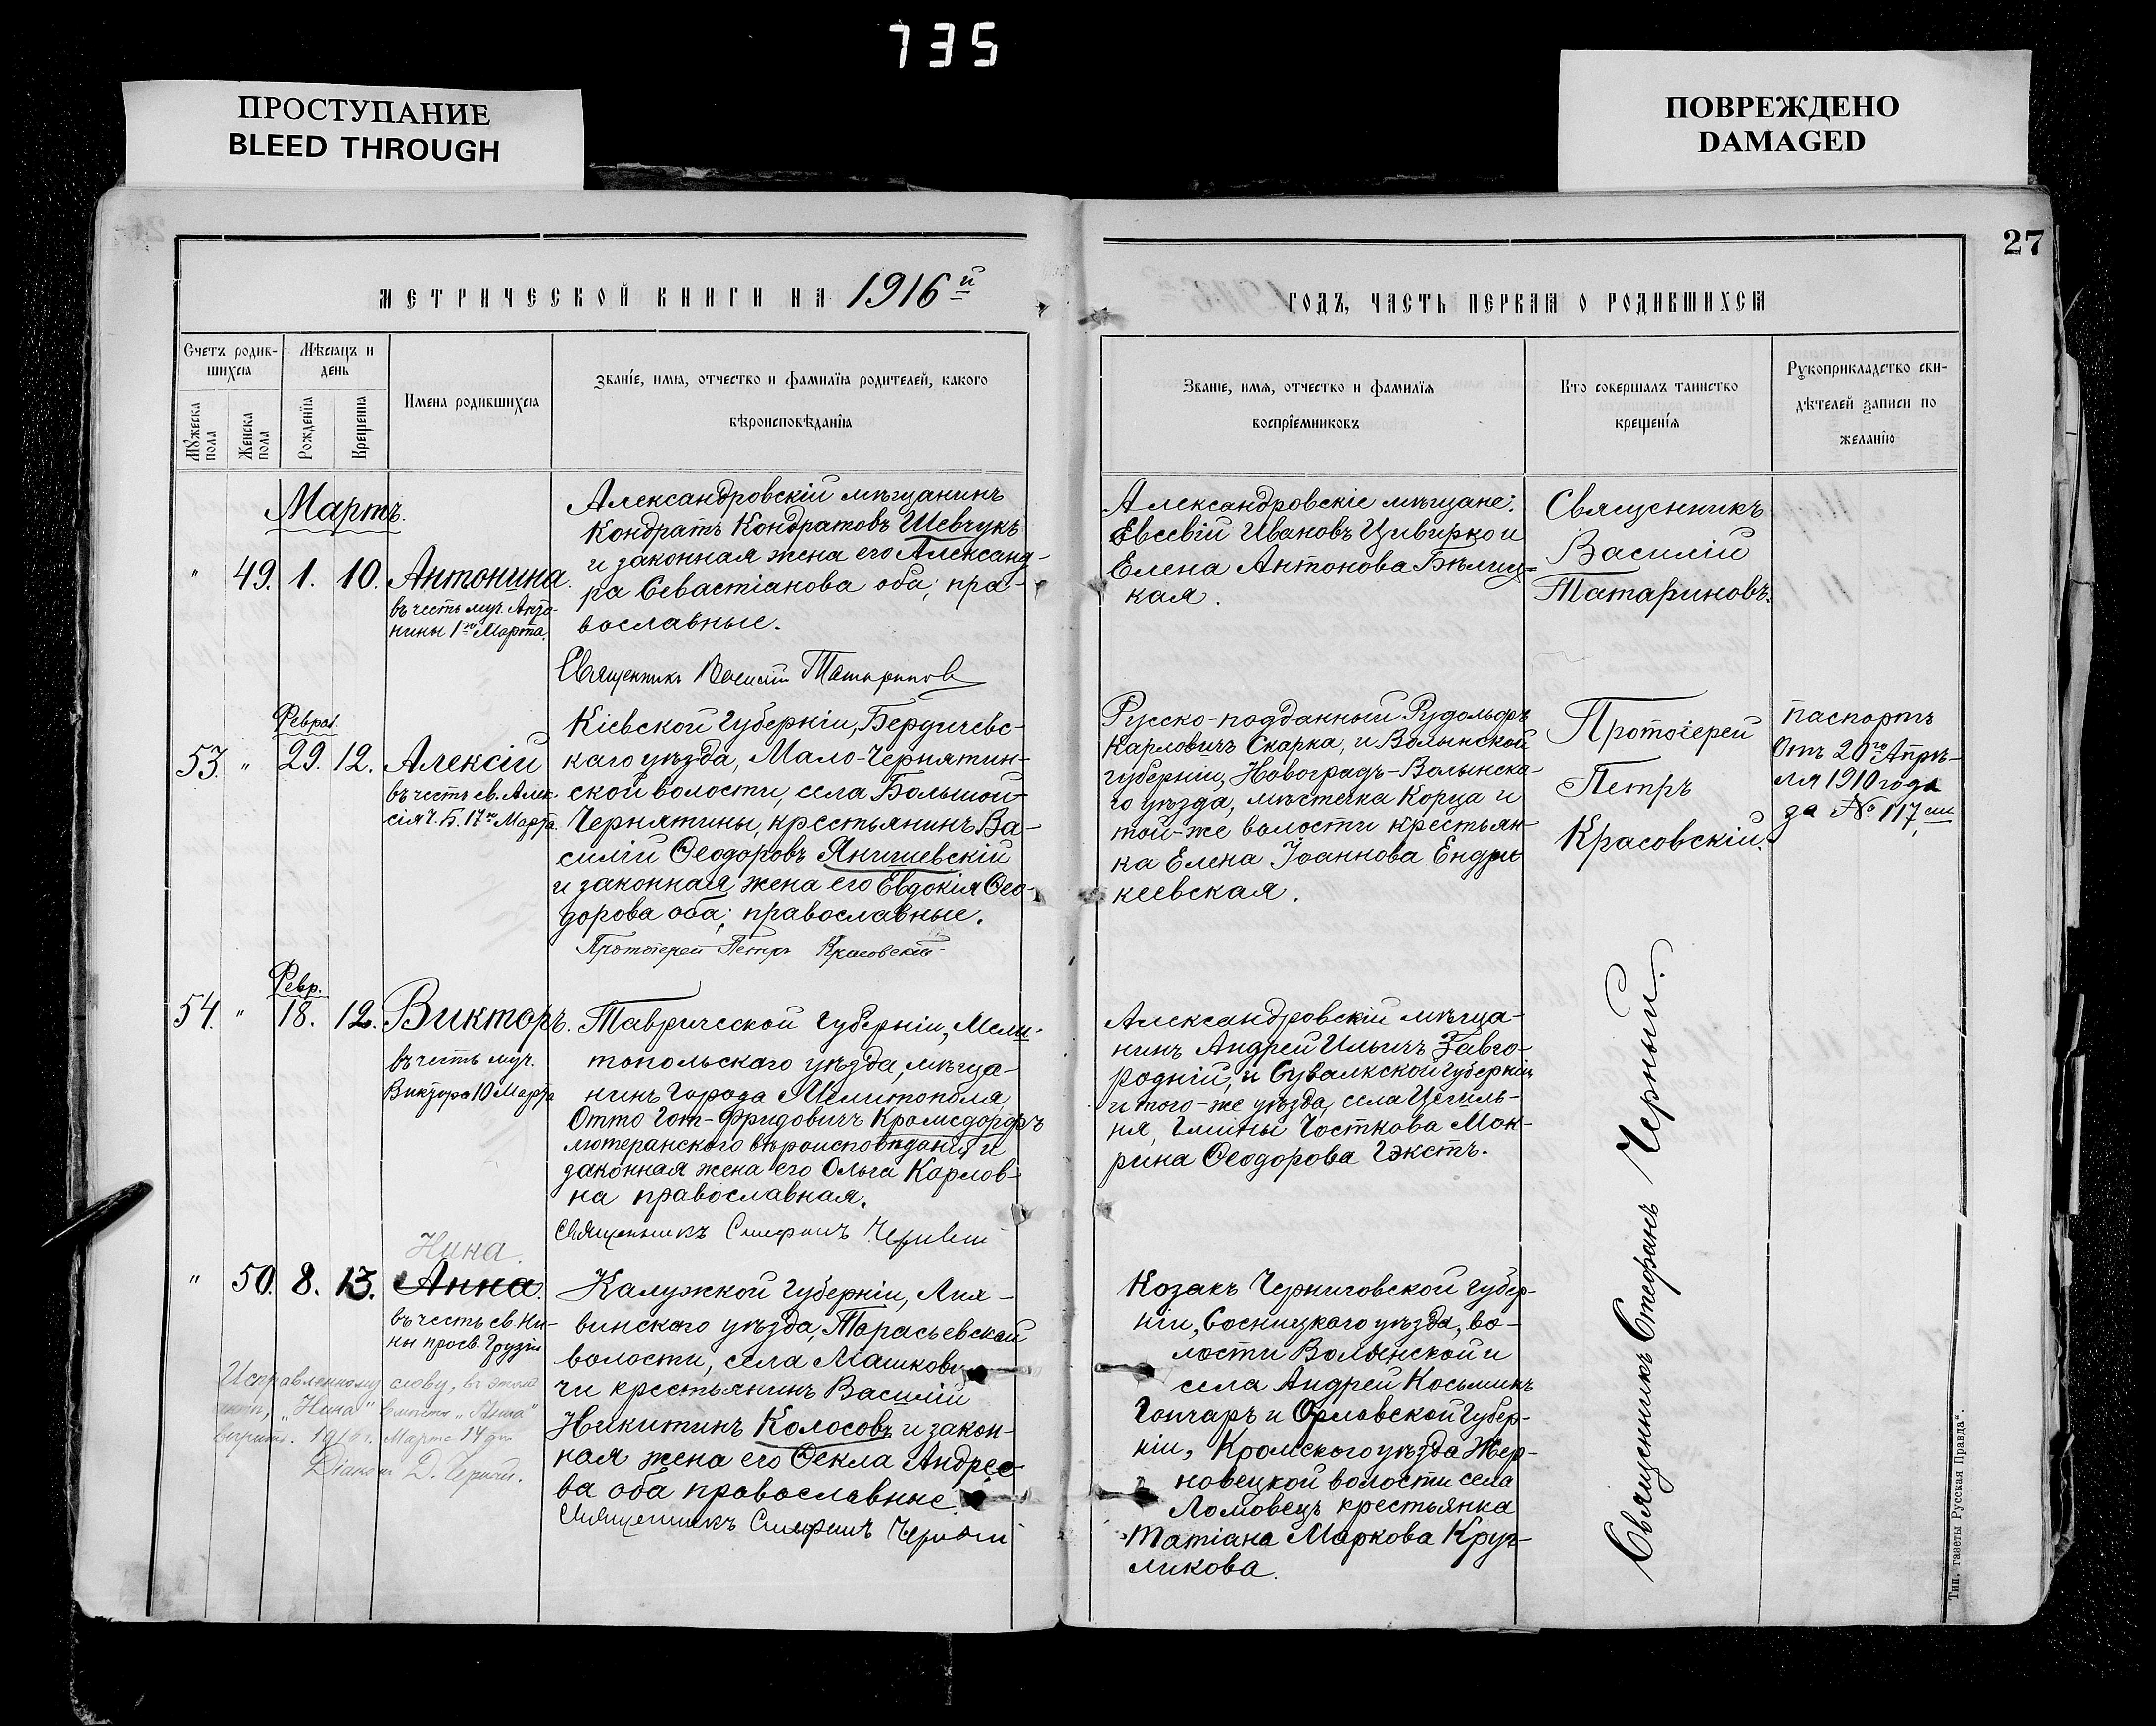 735
ПРОСТУПАНИЕ
BLEED THROUGH
ПОВРЕЖДЕНО
DAMAGED
27
МЕТРИЧЕСКОЙ КНИГИ НА 1916й
ГОДЪ, ЧАСТЬ ПЕРВАЯ О РОДИВШИХСЯ
Счетъ родив-
шихся
Мужеска
пола
Женска
пола
Мѣсяцъ и
день
Рожденія
Крещенія
Имена родившихся
Званіе, имя, отчество и фамилія родителей, какого
вѣроисповѣданія
Званіе, имя, отчество и фамилія
воспріемниковъ
Кто совершалъ таинство
крещенія
Рукоприкладство сви-
дѣтелей записи по
желанію
Мартъ.
" 49. 1. 10. Антонина.
въ честь муч. Анто-
нины 1го Марта.
Александровскій мѣщанинъ
Кондратъ Кондратовъ Шевчукъ
и законная жена его Александ-
ра Севастіанова оба; пра-
вославные.
Священникъ Василій Татариновъ
Александровскіе мѣщане:
Евсевій Ивановъ Цивирко и
Елена Антонова Бѣлиц-
кая.
Священникъ
Василій
Татариновъ.
Феврал.
53. " 29. 12. Алексій
въ честь св. Алек-
сія Ч. Б. 17го Марта.
Кіевской губерніи, Бердичевс-
каго уѣзда, Мало-Чернятин-
ской волости, села Большой-
Чернятины, крестьянинъ Ва-
силій Ѳеодоровъ Янишевскій
и законная жена его Евдокія Ѳео-
дорова оба; православные.
Протоіерей Петръ Красовскій
Русско-подданный Рудольфъ
Карловичъ Скарка, и Волынской
губерніи, Новоградъ-Волынска-
го уѣзда, мѣстечка Корца и
той-же волости крестьян-
ка Елена Іоаннова Ендри-
кеевская.
Протоіерей
Петръ
Красовскій.
Паспортъ
Отъ 20го Апрѣ-
ля 1910 года
за № 117,
Февр.
54. " 18. 12. Викторъ.
въ честь муч.
Виктора 10 Марта
Таврической губерніи, Мели-
топольскаго уѣзда, мѣща-
нинъ города Мелитополя
Отто Гот-Фридовичъ Кромсдорфъ
лютеранского вѣроисповѣданія и
законная жена его Ольга Карлов-
на православная.
Священникъ Стефанъ Черный
Александровскій мѣща-
нинъ Андрей Ильичъ Завго-
родній, и Сувалкской губерніи
и того-же уѣзда, села Цегиль-
ня, Гмины Чосткова Мон-
рина Ѳеодорова Гэкстъ.
Священникъ Стефанъ Черный.
Нина.
" 50. 8. 13. Анна.
въ честь св. Ни-
ны просв. Грузіи
Исправленному слову, въ этомъ
актѣ, „Нина" вмѣсто „Анна"
вѣрить. 1916 г. Марта 14 дня
Діаконъ Д. Черный.
Калужкой губерніи, Лих-
винскаго уѣзда, Тарасьевской
волости, села Машкови-
чи крестьянинъ Василій
Никитинъ Колосовъ и закон-
ная жена его Ѳекла Андрее-
ва оба православные.
Священникъ Стефанъ Черный
Козакъ Черниговской губер-
ніи, Сосницкаго уѣзда, во-
лости Волынской и
села Андрей Косьминъ
Гончаръ и Орловской Губер-
ніи, Кромскаго уѣзда Жер-
новецкой волости села
Ломовецъ крестьянка
Татіана Маркова Круг-
ликова.
Тип. газеты Русская Правда".